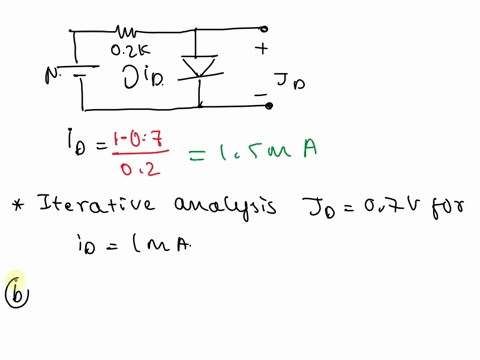 0.2K
+
N.
iD.
JD
-
iD = 1-0.7 / 0.2 = 1.5mA
* Iterative analysis JD = 0.7V for
iD = 1mA.
b